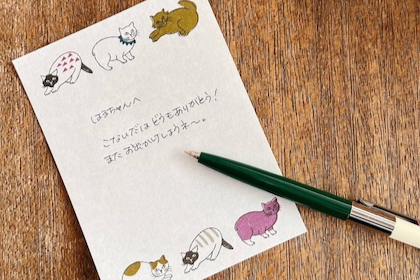 はるちゃんへ
こないだは どうもありがとう!
また お出かけしようネ〜。